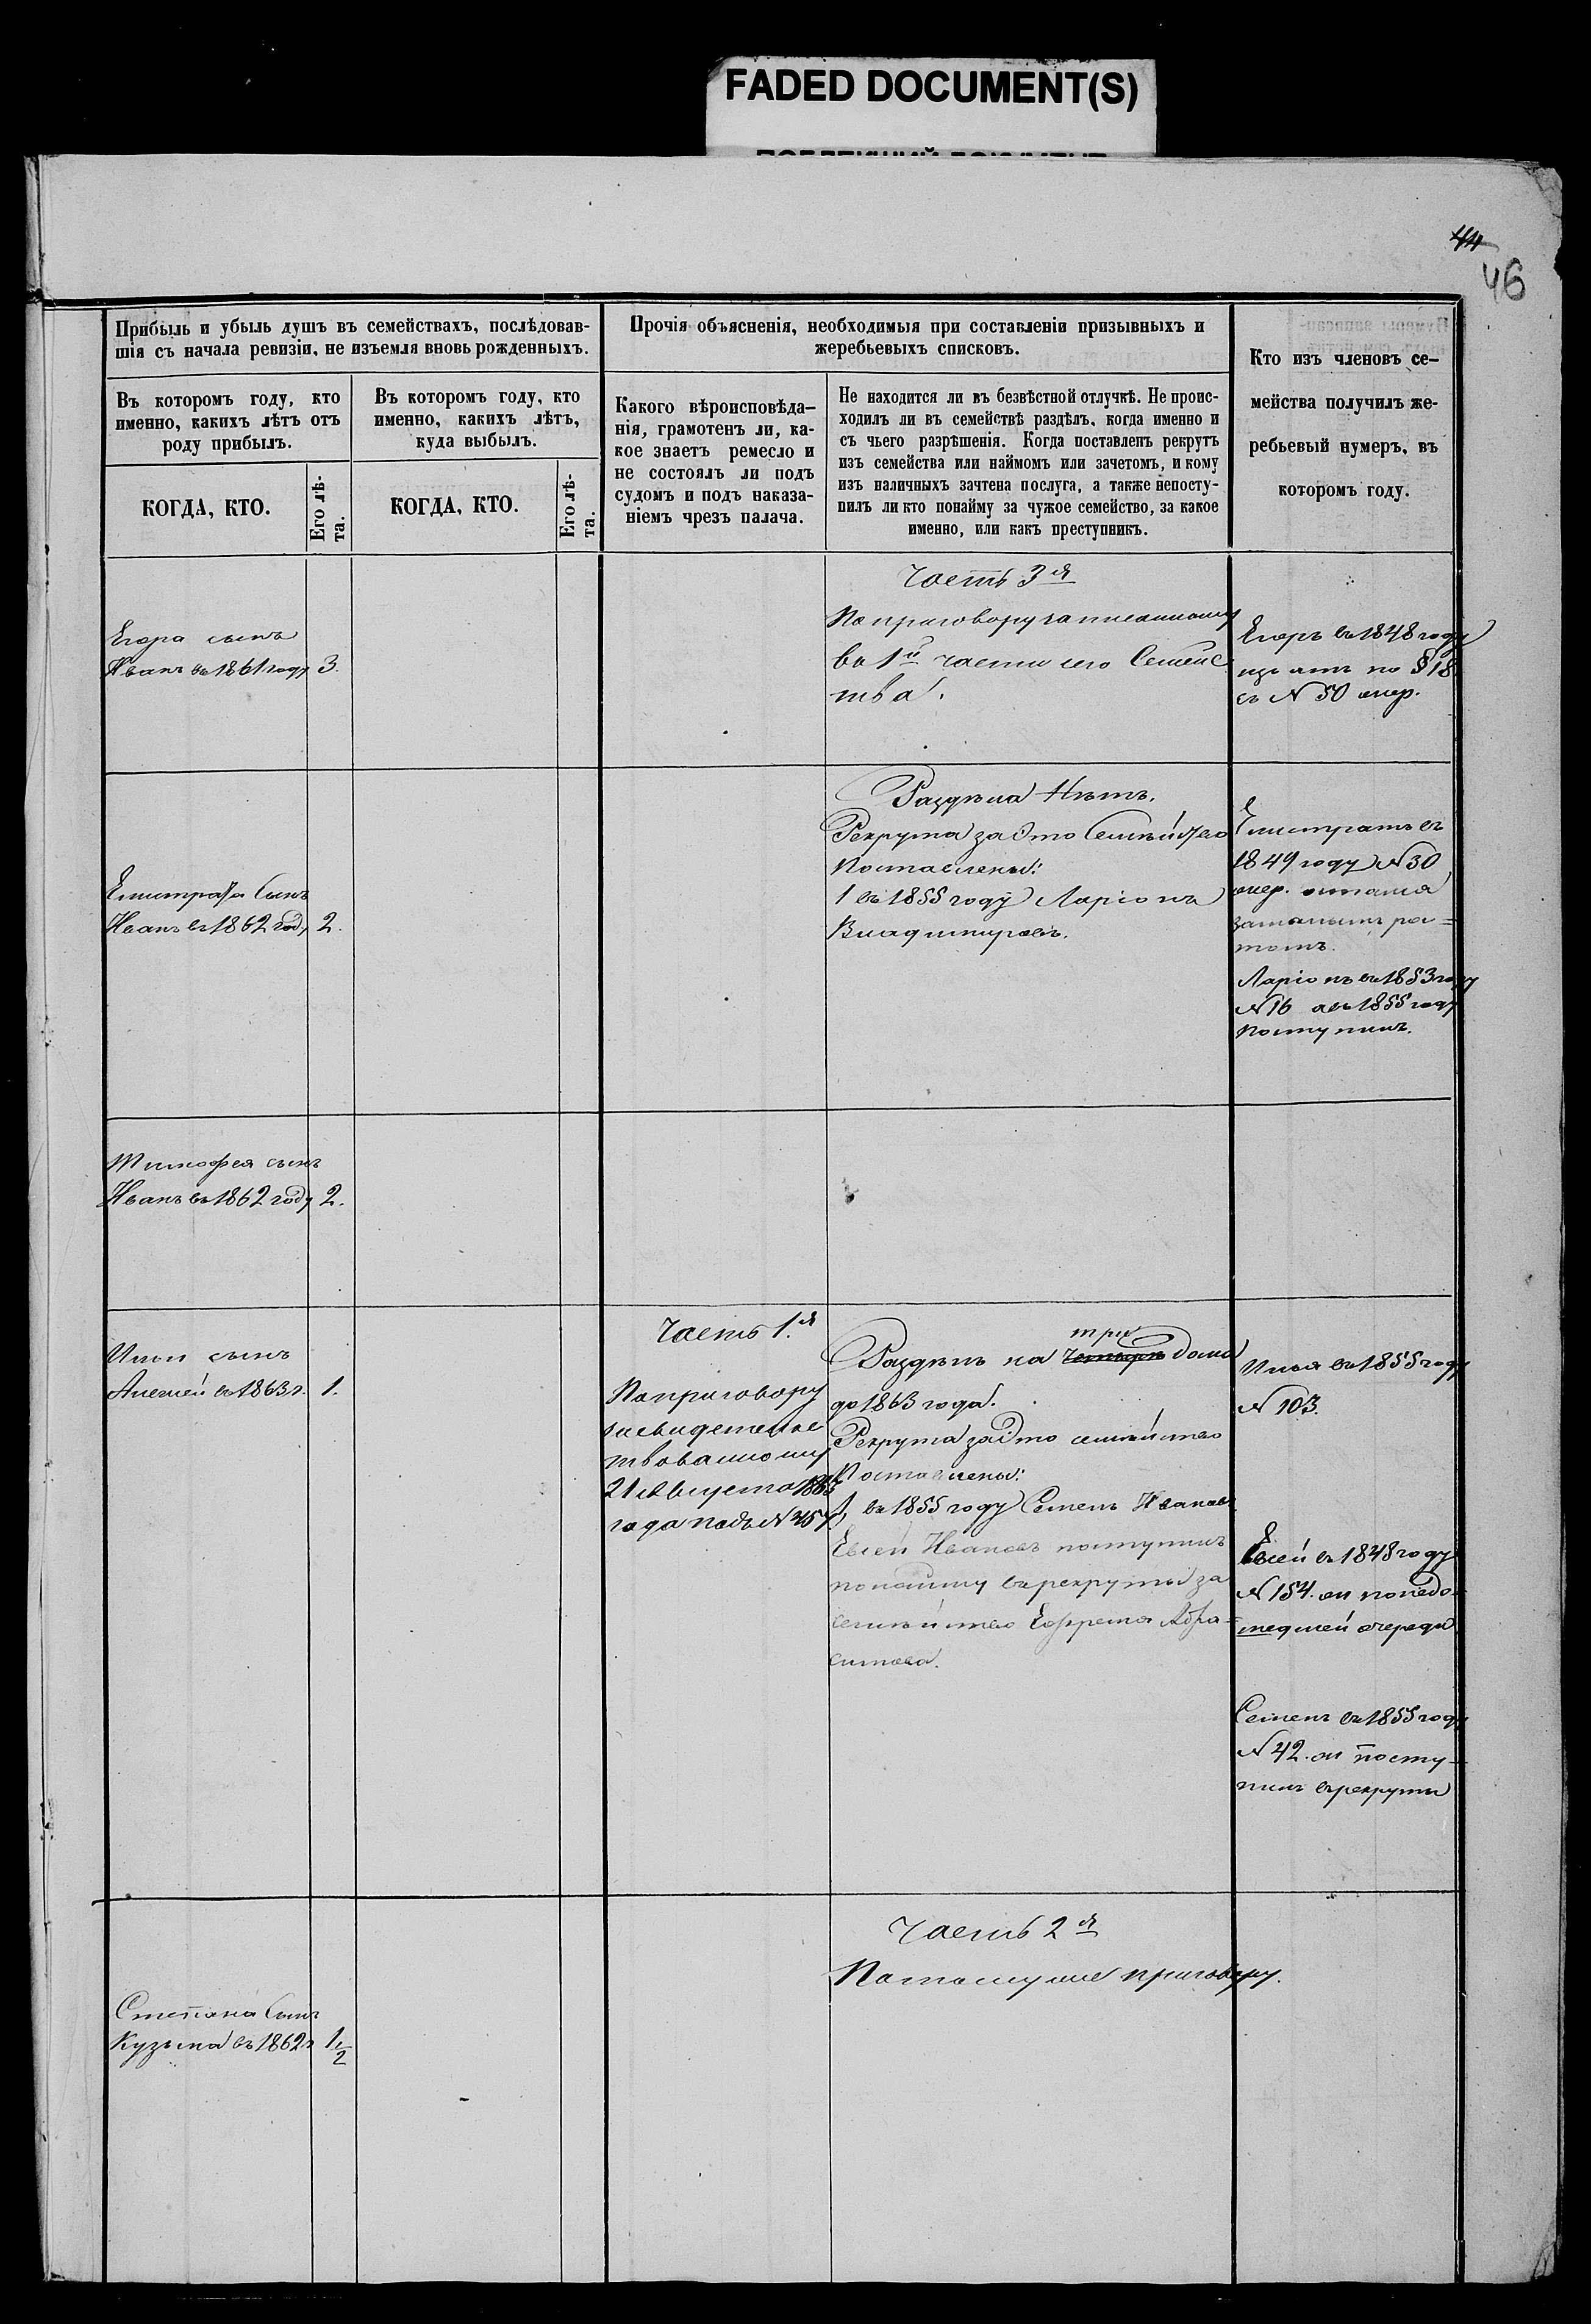 FADED DOCUMENT(S)
44
46
Прибыль и убыль душъ въ семействахъ, послѣдовав-
шія съ начала ревизіи, не изъемля вновь рожденныхъ.
Въ которомъ году, кто
именно, какихъ лѣтъ отъ
роду прибылъ.
КОГДА, КТО.
Его лѣ-
та.
Въ которомъ году, кто
именно, какихъ лѣтъ,
куда выбылъ.
КОГДА, КТО.
Его лѣ-
та.
Прочія объясненія, необходимыя при составленіи призывныхъ и
жеребьевыхъ списковъ.
Какого вѣроисповѣда-
нія, грамотенъ ли, ка-
кое знаетъ ремесло и
не состоялъ ли подъ
судомъ и подъ наказа-
ніемъ чрезъ палача.
Не находится ли въ безвѣстной отлучкѣ. Не проис-
ходилъ ли въ семействѣ раздѣлъ, когда именно и
съ чьего разрѣшенія. Когда поставленъ рекрутъ
изъ семейства или наймомъ или зачетомъ, и кому
изъ наличныхъ зачтена послуга, а также непосту-
пилъ ли кто понайму за чужое семейство, за какое
именно, или какъ преступникъ.
Кто изъ членовъ се-
мейства получилъ же-
ребьевый нумеръ, въ
которомъ году.
Егора сынъ
Иванъ въ 1861 году 3.
Часть 3я
По приговору записанному
въ 1й части сего Семейс
тва.
Егоръ въ 1848 году
изъятъ по § 18
съ N 50 очер.
Елистрата Сынъ
Иванъ въ 1862 году 2.
Раздѣла Нѣтъ.
Рекрута за Это Семѣйство
Поставлены:
1 въ 1855 году Ларіонъ
Владимировъ.
Елистратъ въ
1849 году N 30
очер.
Ларіонъ въ 1853 году
N 16 а въ 1855 году
поступилъ.
Тимофея сынъ
Иванъ въ 1862 году 2.
Ильи сынъ
Алексей въ 1863 г. 1.
Часть 1.я
По приговору
засвидетельс
твованному
21 Августа 1863
года подъ N 457.
три
Раздѣлъ на четыре дома
до 1863 года.
Рекрута за Это семѣйство
Поставлены:
1, въ 1855 году Семенъ Ивановъ
Евсей Ивановъ поступилъ
понайму въ рекруты за
семѣйство Ефрема
Илья въ 1855 году
N 103.
Евсей въ 1848 году
N 154. он по недо-
шедшей очереди
Семенъ въ 1855 году
N 42. он посту-
пилъ в рекруты
Часть 2я
По тому же приговору.
Степана Сынъ
Кузьма въ 1862 г 1 1/2